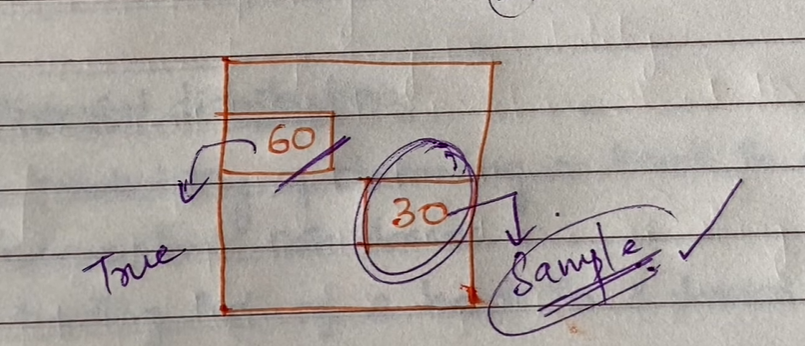 60
30
True
Sample